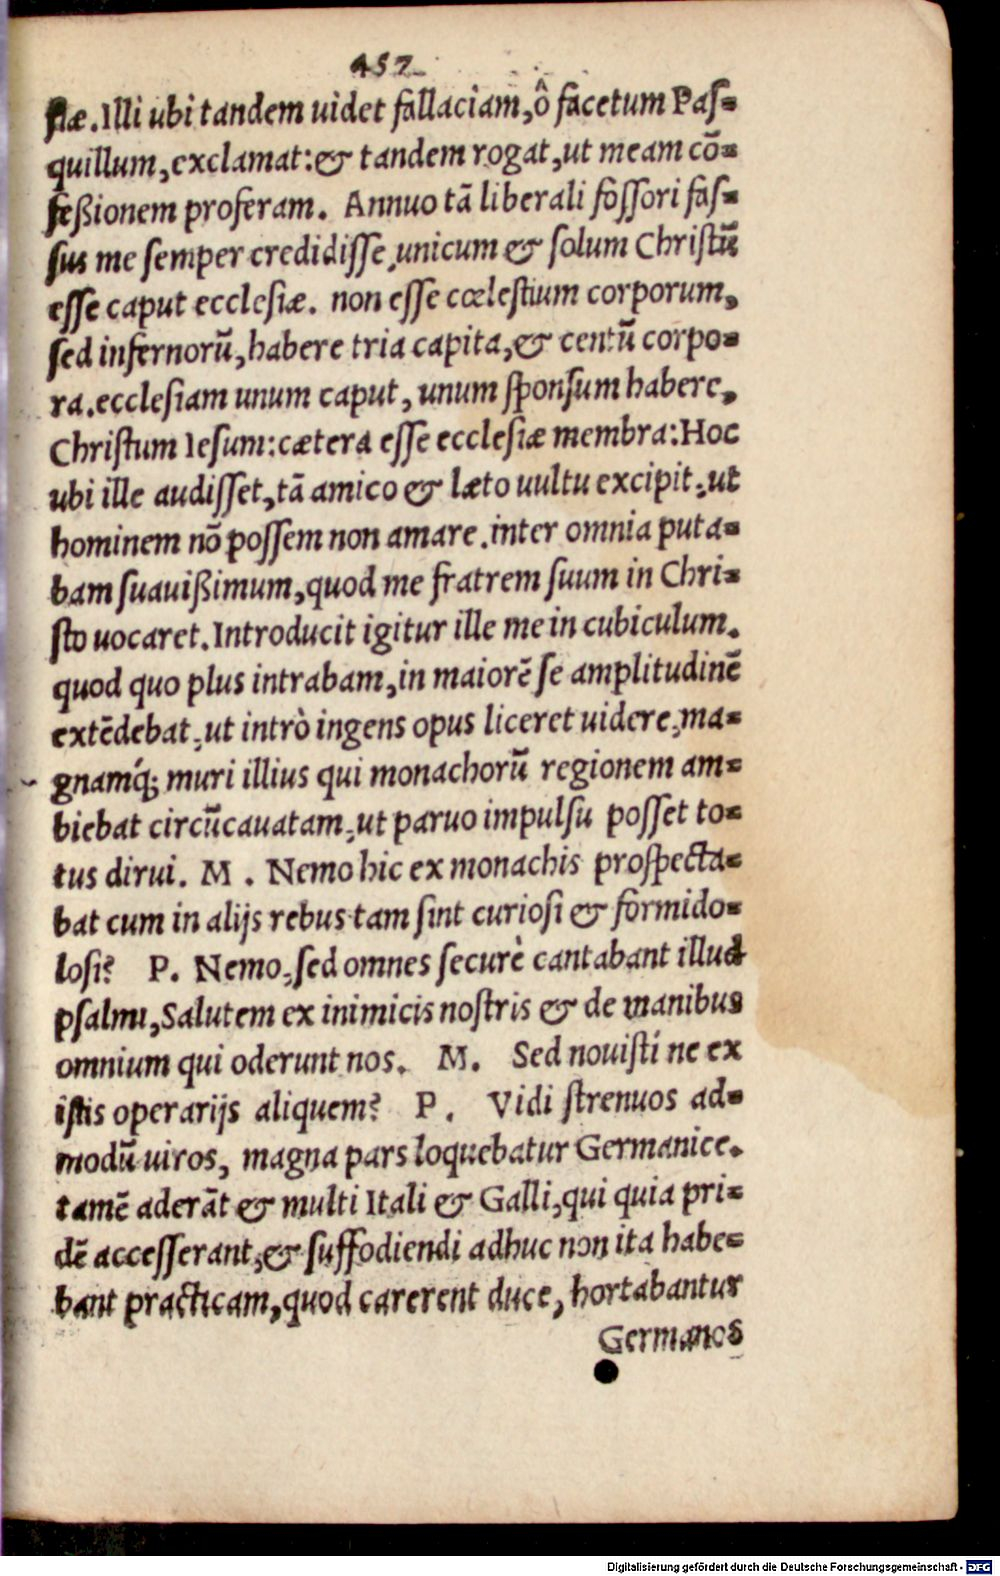 457
stiæ. Illi ubi tandem uidet fallaciam, ô facetum Pas=
quillum, exclamat: & tandem rogat, ut meam cō=
feßionem proferam. Annuo tā liberali fossori fas=
sus me semper credidisse, unicum & solum Christū
esse caput ecclesiæ. non esse cœlestium corporum,
sed infernorū, habere tria capita, & centū corpo=
ra. ecclesiam unum caput, unum sponsum habere,
Christum Iesum: cætera esse ecclesiæ membra: Hoc
ubi ille audisset, tā amico & læto uultu excipit, ut
hominem nō possem non amare. inter omnia puta=
bam suauißimum, quod me fratrem suum in Chri=
sto uocaret. Introducit igitur ille me in cubiculum.
quod quo plus intrabam, in maiorē se amplitudinē
extēdebat, ut intrò ingens opus liceret uidere, ma=
gnamq́; muri illius qui monachorū regionem am=
biebat circūcauatam, ut paruo impulsu posset to=
tus dirui. M. Nemo hic ex monachis prospecta=
bat cum in alijs rebus tam sint curiosi & formido=
losi? P. Nemo, sed omnes securè cantabant illud
psalmi, Salutem ex inimicis nostris & de manibus
omnium qui oderunt nos. M. Sed nouisti ne ex
istis operarijs aliquem? P. Vidi strenuos ad=
modū uiros, magna pars loquebatur Germanice.
tamē aderāt & multi Itali & Galli, qui quia pri=
dē accesserant, & suffodiendi adhuc non ita habe=
bant practicam, quod carerent duce, hortabantur
Germanos
Digitalisierung gefördert durch die Deutsche Forschungsgemeinschaft - DFG